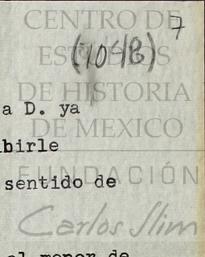 CENTRO DE
7
ESTUDIOS
(1048)
DE HISTORIA
a D. ya
DE MEXICO
birle
FUNDACIÓN
sentido de
Carlos Slim
al menor de